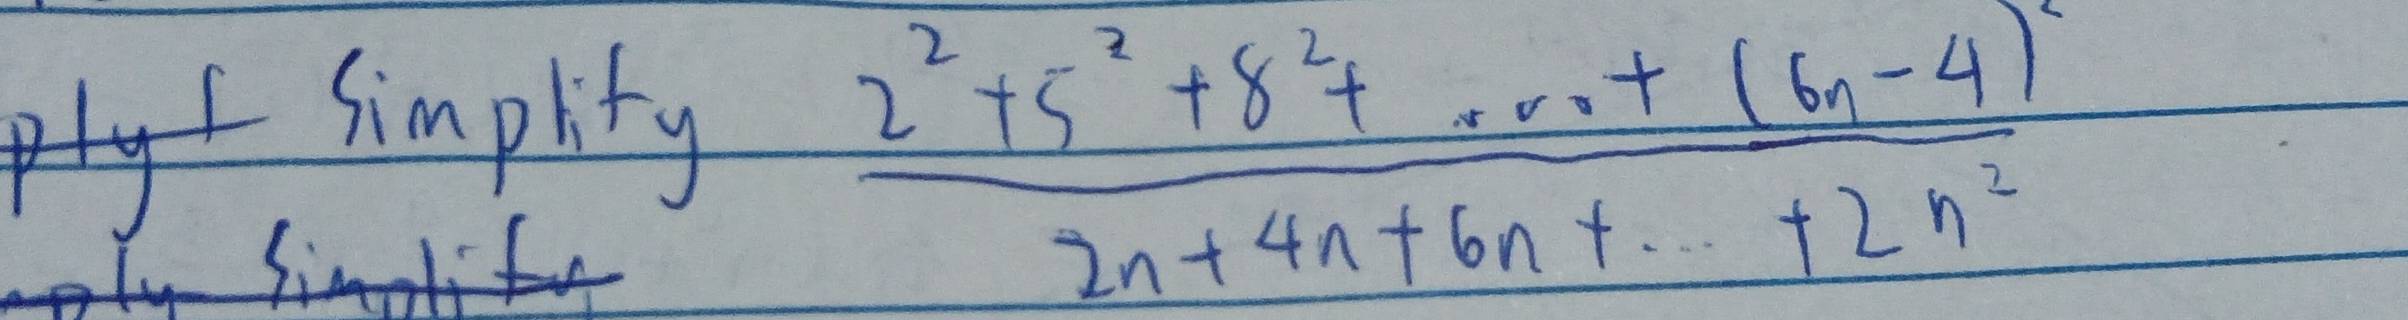 ply f Simplify 2² + 5² + 8² + .... + (6n - 4)²
2n + 4n + 6n + ... + 2n²
ply Simplify